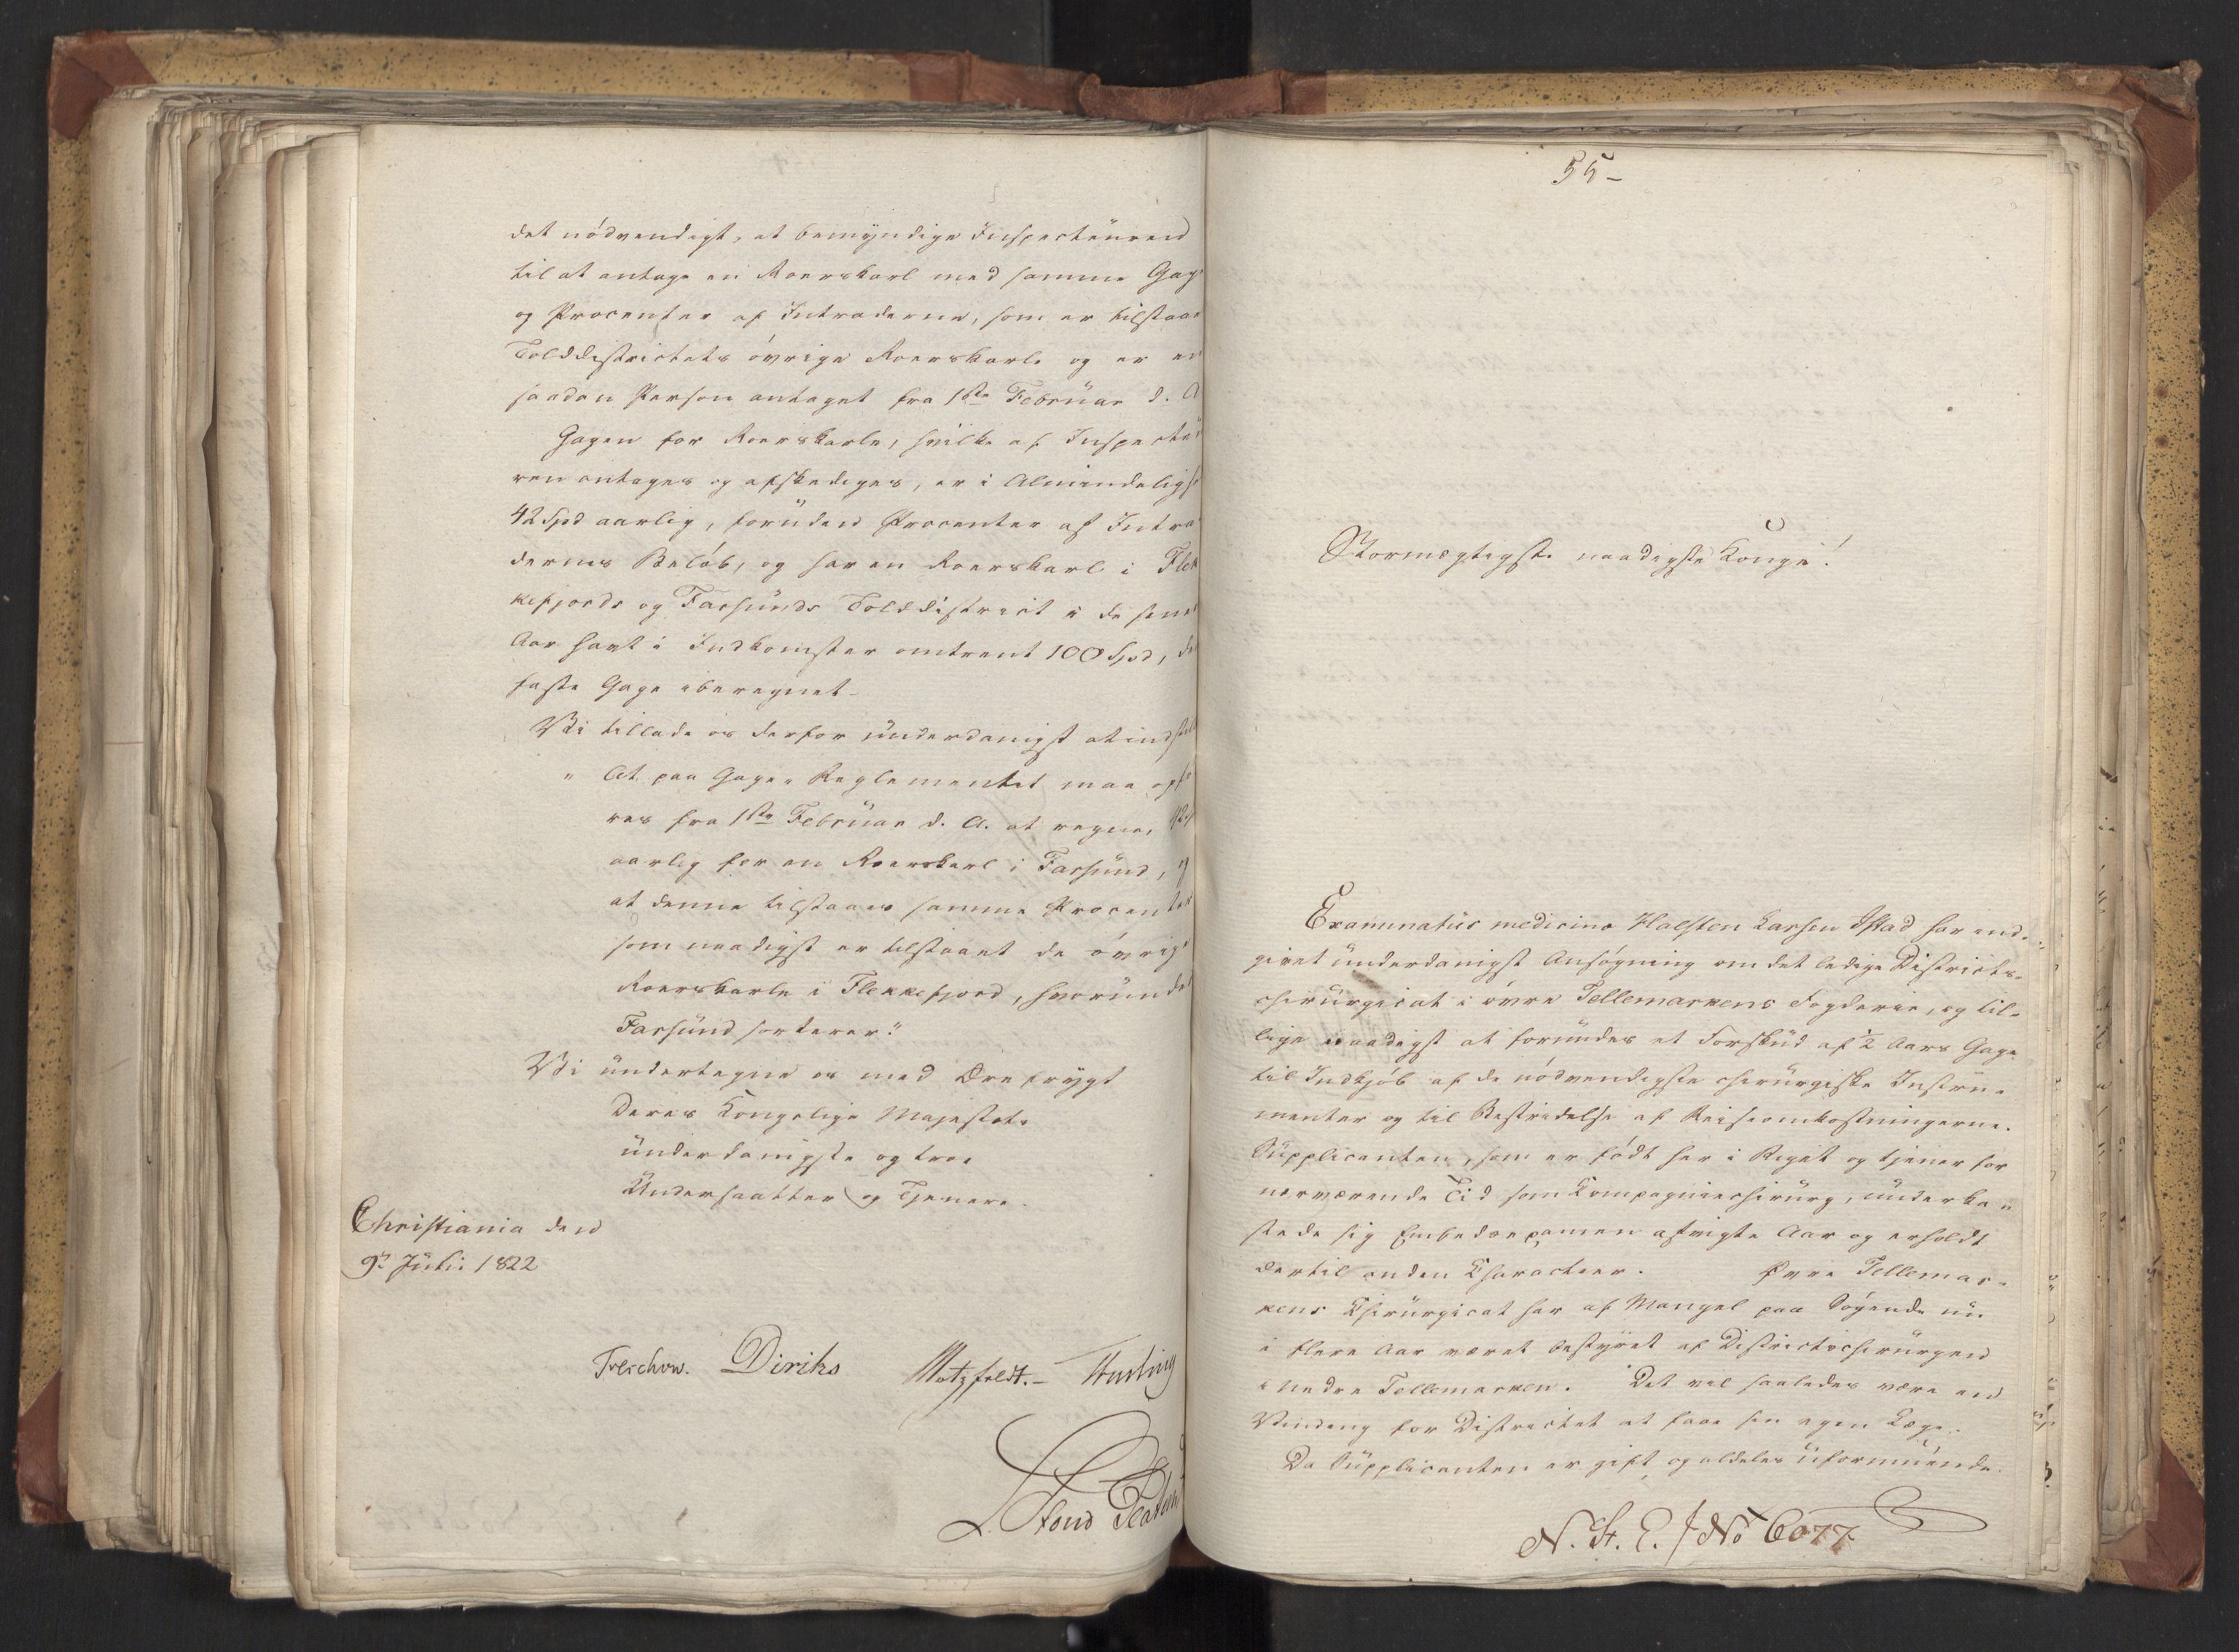 det nödvendigt, at bemyndige Inspecteuren
til at antage en Roerskarl med samme Gage
og Procenter af Intraderne, som er tilstaae
Tolddistrictets övrige Roerskarle og er en
saadan Person antaget fra 1ste Februar d. A
Gagen for Roerskarle, hvilke af Inspecteu
ren antages og afskediges, er i Almindeligh
42 Spd aarlig, foruden Procenter af Intra
dernes Belöb, og har en Roerskarl i Flek
kefjords og Farsunds Tolddistrict i de sene
Aar havt i Indkomster omtrent 100 Spd, de
faste Gage iberegnet.
Vi tillade os derfor underdanigst at indstil
" At paa Gage-Reglementet maa opfö
res fra 1ste Februar d. A. at regne, 42
aarlig for en Roerskarl i Farsund, og
at denne tilstaaes samme Procenter
som naadigst er tilstaaet de övrige
Roerskarle i Flekkefjord, hvorunder
Farsund sorterer."
Vi undertegne os med Ærefrygt
Deres Kongelige Majestæts
underdanigste og troe
Undersaatter og Tjenere.
Christiania den
9de Julii 1822
Treschow. Diriks Motzfeldt.- 
55-
Stormægtigste naadigste Konge!
Examinatus medicinæ Halsten Larsen Istad har ind-
givet underdanigst Ansögning om det ledige Districts-
chirurgicat i övre Tellemarkens Fogderie, og til-
lige naadigst at forundes et Forskud af 1/2 Aars Gage
til Indkjöb af de nödvendigste chirurgiske Instru-
menter og til Bestridelse af Reiseomkostningerne.
Supplicanten, som er födt her i Riget og tjener for
nærværende Tid som Compagniechirurg, underka-
stede sig Embedsexamen afvigte Aar og erholdt
dertil anden Character. Övre Tellemar-
kens Chirurgicat har af Mangel paa Sögende nu
i flere Aar været bestyret af Districtschirurgen
i nedre Tellemarken. Det vil saaledes være en
Vinding for Districtet at faae sin egen Læge.
Da Supplicanten er gift og aldeles uformuende
N. St. E. / No 6077